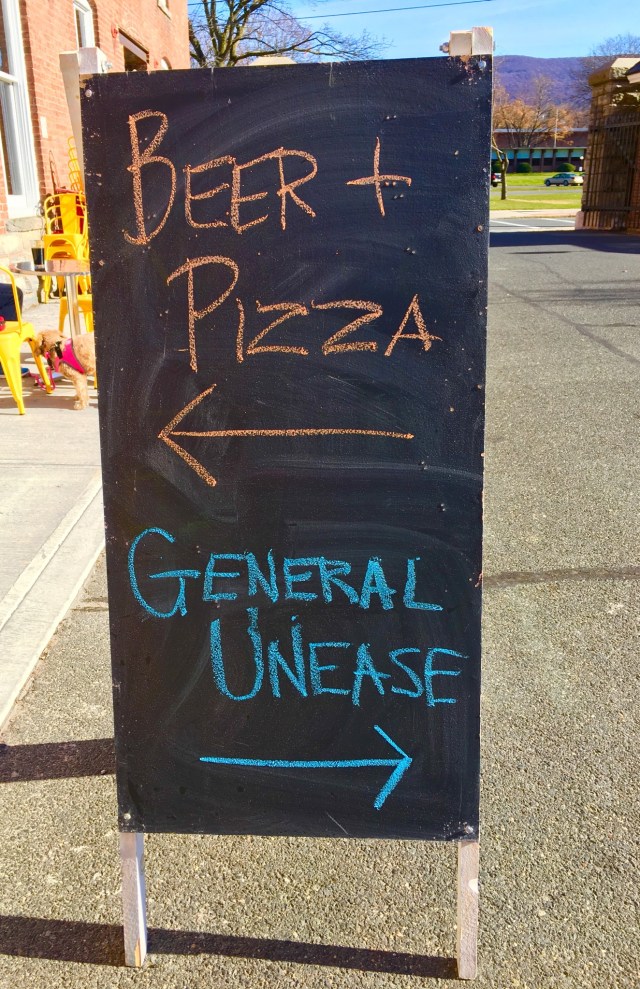 BEER +
PIZZA
←
GENERAL
UNEASE
→